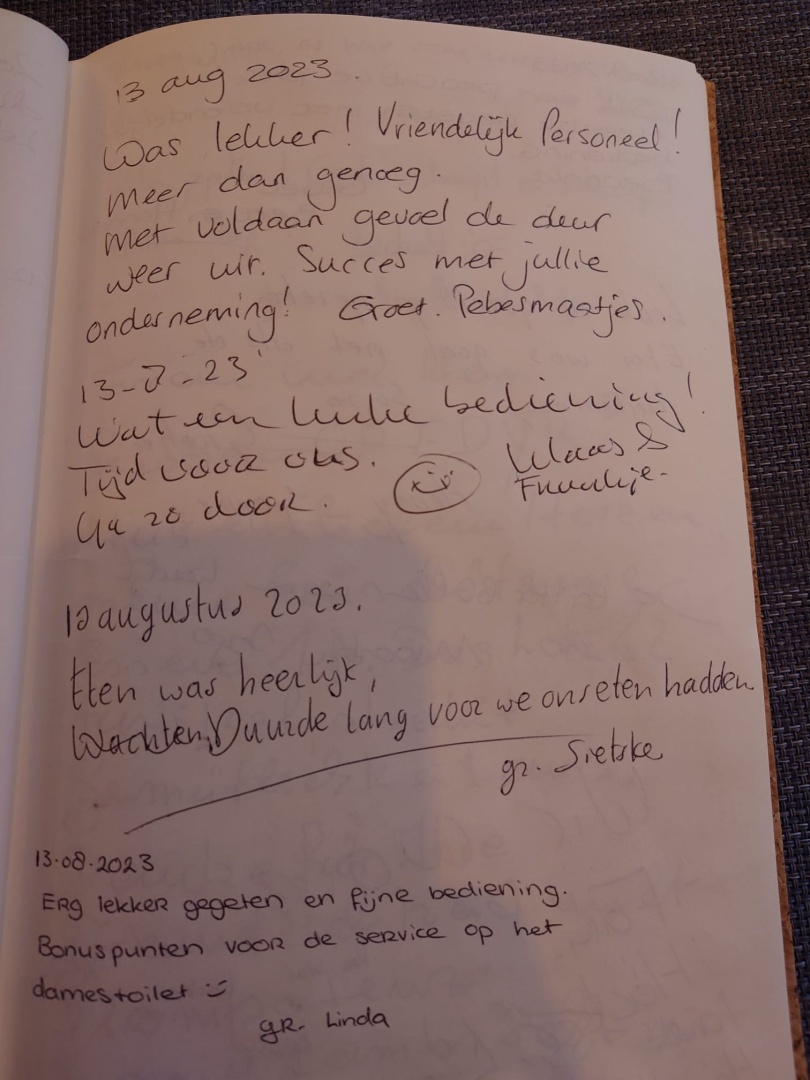 13 aug 2023.
Was lekker! Vriendelijk Personeel!
meer dan genoeg.
met voldaan gevoel de deur
weer uit. Succes met jullie
onderneming! Groet. Pebesmaatjes.
13-8-23
Wat een leuke bediening!
Tijd voor ons. Klaas &
Ga zo door. Fruukje-
13 augustus 2023.
Eten was heerlijk,
Wachten, Duurde lang voor we ons eten hadden
gr. Sietske
13.08.2023
Erg lekker gegeten en fijne bediening.
Bonuspunten voor de service op het
damestoilet :-)
gr. Linda